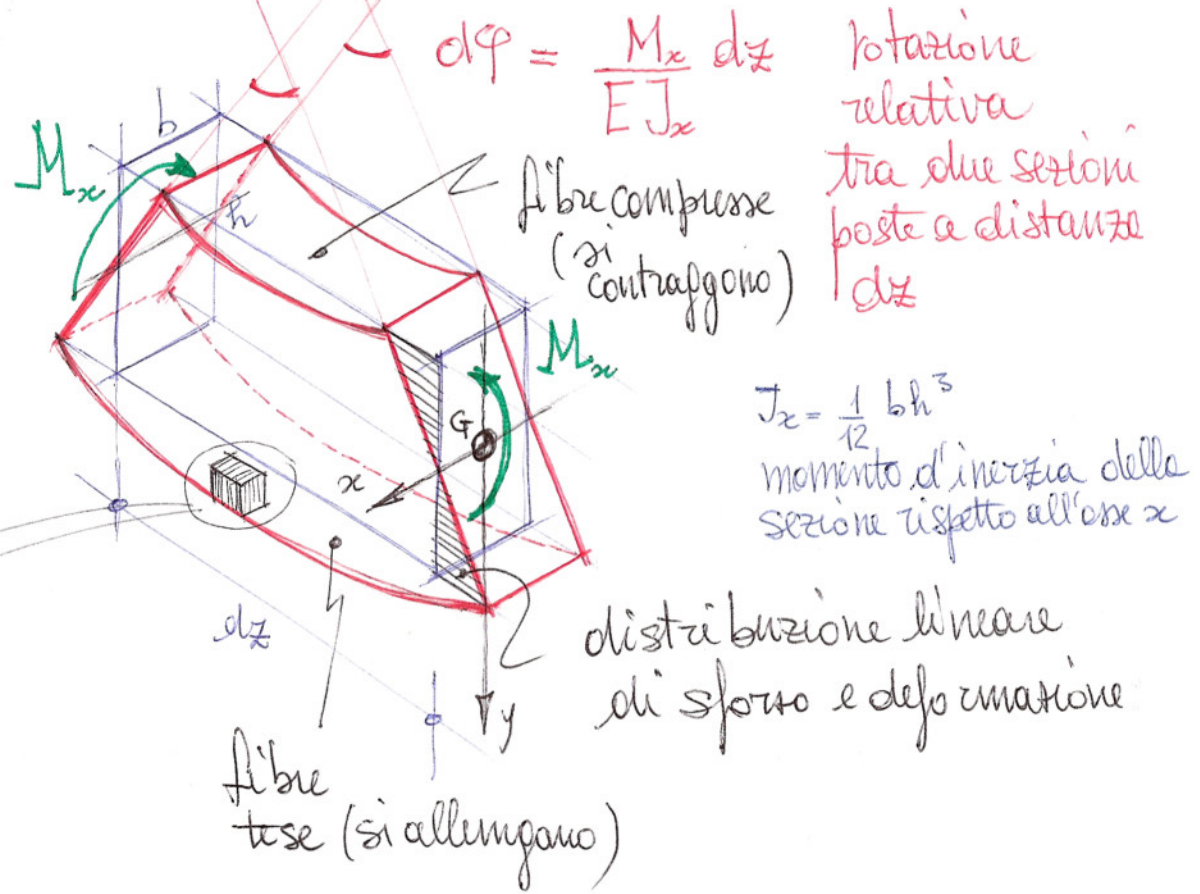 dφ = Mx / EJx dz
rotazione
relativa
tra due sezioni
poste a distanza
dz
b
Mx
h
fibre compresse
(si
contraggono)
Mx
G
x
Jx = 1/12 bh³
momento d'inerzia della
sezione rispetto all'asse x
dz
distribuzione lineare
di sforzo e deformazione
y
fibre
tese (si allungano)